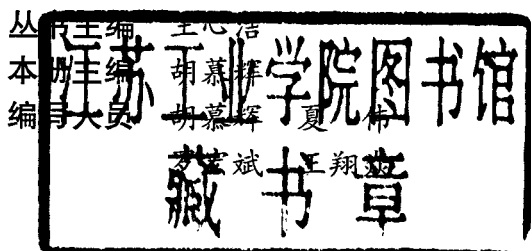 丛书主编 王心洁
本册主编 胡慕辉
编写人员 胡慕辉 夏 伟
斌 王翔
江苏工业学院图书馆
藏书章